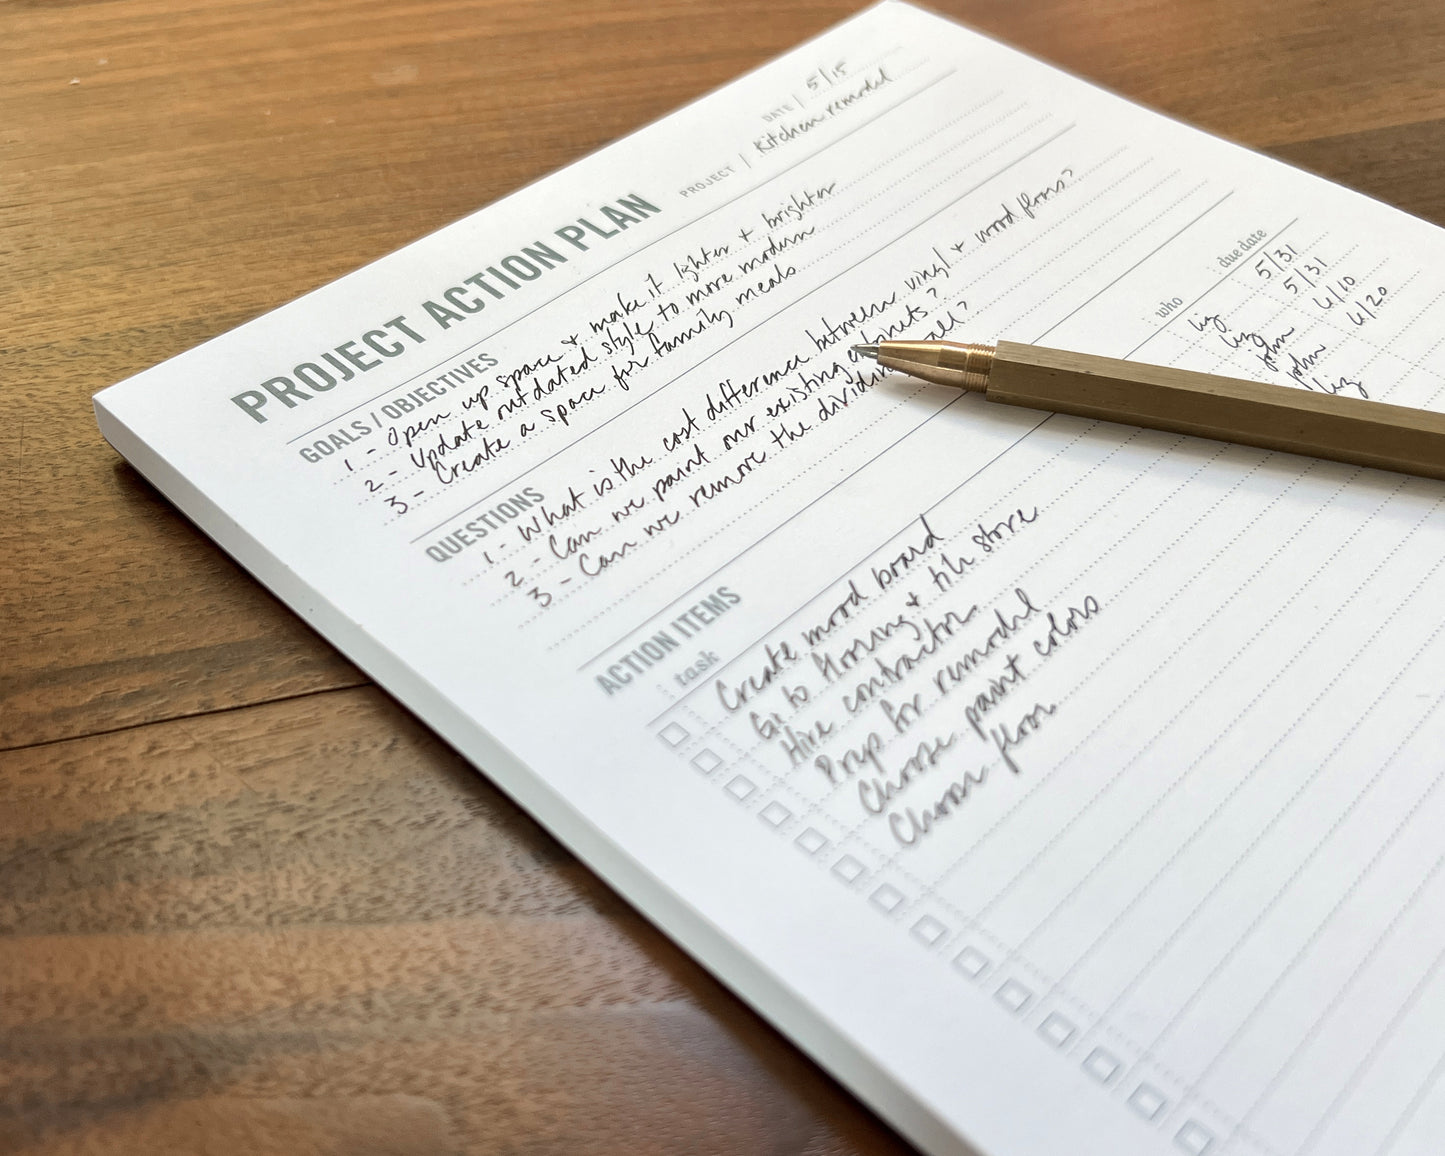 PROJECT ACTION PLAN
DATE | 5/15
PROJECT | Kitchen remodel
GOALS / OBJECTIVES
1 - Open up space + make it lighter + brighter
2 - Update outdated style to more modern
3 - Create a space for family meals
QUESTIONS
1 - What is the cost difference between vinyl + wood floors?
2 - Can we paint our existing cabinets?
3 - Can we remove the dividing wall?
ACTION ITEMS
task who due date
Create mood board liz 5/31
Go to flooring + tile store liz 5/31
Hire contractor John 4/10
Prep for remodel John 4/20
Choose paint colors liz
Choose floor